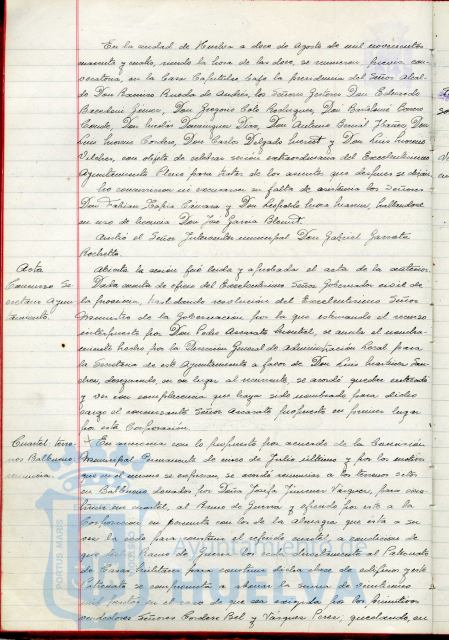 En la ciudad de Huelva a doce de Agosto de mil novecientos
cuarenta y cuatro, siendo la hora de las doce, se reunieron previa con-
vocatoria, en la Casa Capitular bajo la presidencia del Señor Alcal-
de Don Ramiro Rueda de Andrés, los Señores Gestores Don Eduardo
Don Gregorio Cote Rodriguez, Don Bartolomé
Conde, Don Nicolás Dominguez Diaz, Don Antonio
Luis Cordero, Don Carlos Delgado y Don Luis
con objeto de celebrar sesión extraordinaria del Excelentísimo
Ayuntamiento Pleno para tratar de los asuntos que despues se dirán.
No concurrieron ni excusaron su falta de asistencia los Señores
Don Fabian Tapia y Don hallandose
en uso de licencia Don José Garcia
Asistió el Señor Interventor municipal Don Gabriel Garrote
Acta
Abierta la sesión fué leida y aprobada el acta de la anterior.
Concurso Se-
cretaria Ayun-
tamiento.
Dada cuenta de oficio del Excelentísimo Señor Gobernador civil de
la provincia, trasladando resolución del Excelentísimo Señor
Ministro de la Gobernación por la que estimando el recurso
interpuesto por Don Pedro se anula el nombra-
miento hecho por la Dirección General de Administración Local para
la Secretaria de este Ayuntamiento a favor de Don Luis Martinez San-
chez, designando en su lugar al recurrente, se acordó quedar enterado
y ver con complacencia que haya sido nombrado para dicho
cargo el concursante Señor propuesto en primer lugar
por esta Corporación.
Cuartel: terre-
nos Balbueno
renuncia.
En armonia con lo propuesto por acuerdo de la Comisión
Municipal Permanente de mes de Julio último y por los motivos
que en el mismo se expresan, se acordó renunciar a los terrenos sitos
en Balbueno donados por Doña Josefa Jimenez Vazquez, para cons-
truir un cuartel, al Ramo de Guerra y ofrecido por este a la
Corporación en permuta con los de la que esta a su
vez le cedió para construir el referido cuartel, a condicion de
que dicho Ramo de Guerra los ceda directamente al Patronato
de Casas Militares para construir dicha clase de edificios y este
Patronato se comprometa a abonar la suma de veinticinco
mil pesetas en el caso de que sea exigida por los primitivos
vendedores Señores Cordero Bel y Vazquez Perez; quedando, en
PORTUS MARIS
Ayuntamiento de
HUELVA